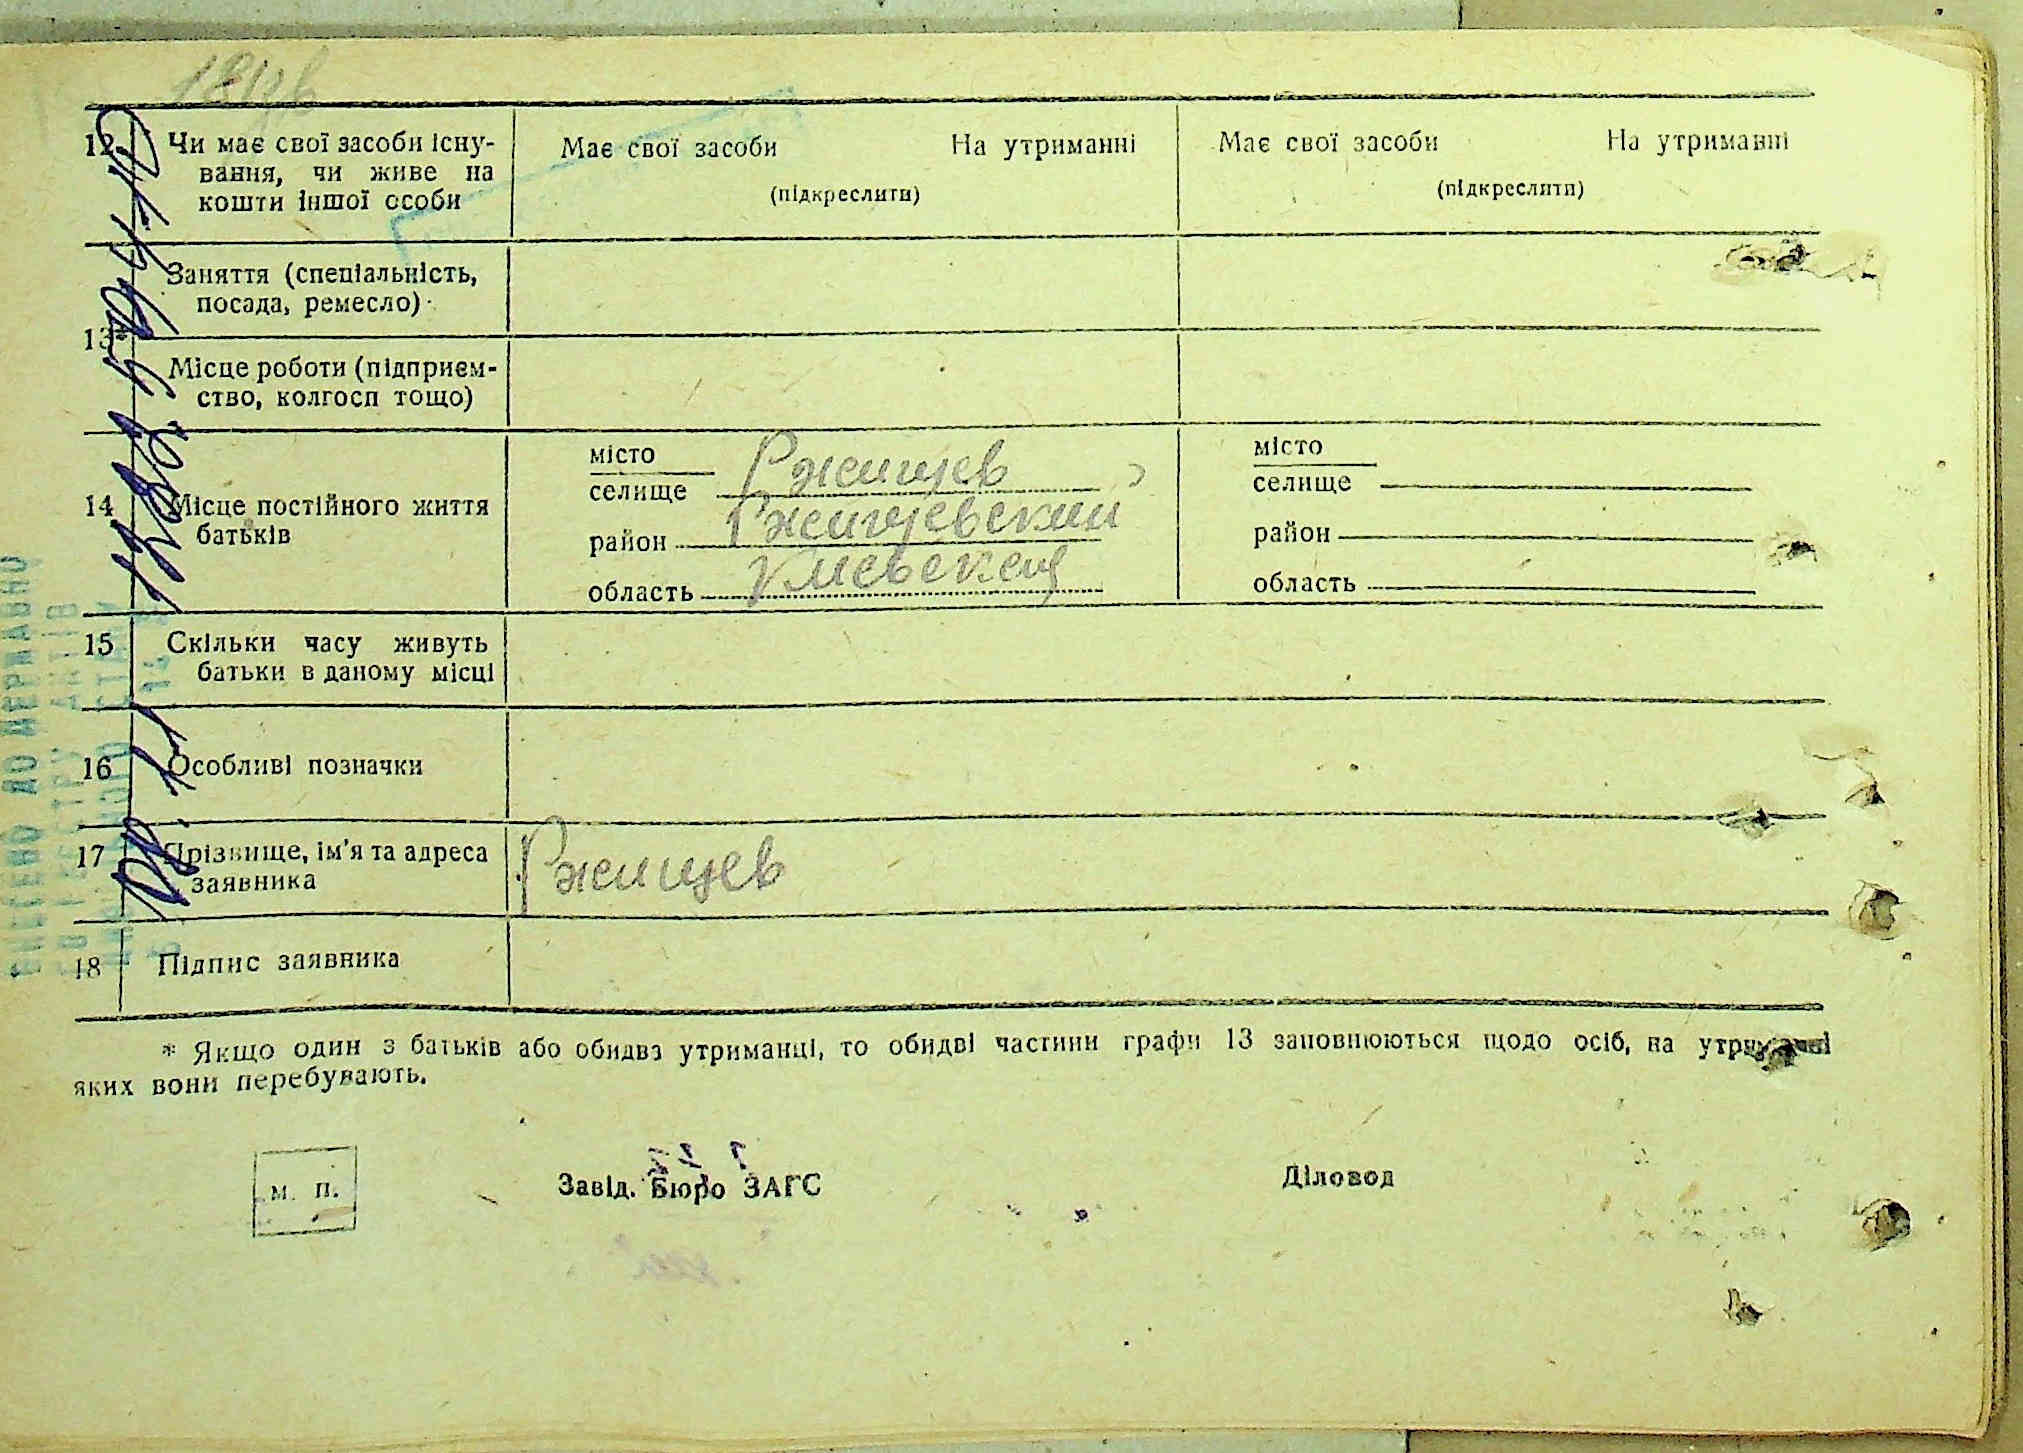 12 Чи має свої засоби існу-
вання, чи живе на
кошти іншої особи
Має свої засоби На утриманні
(підкреслити)
Має свої засоби На утриманні
(підкреслити)
13*
Заняття (спеціальність,
посада, ремесло)
Місце роботи (підприєм-
ство, колгосп тощо)
14 Місце постійного життя
батьків
місто
селище Ржищев
район Ржищевский
область Киевская
місто
селище
район
область
15 Скільки часу живуть
батьки в даному місці
16 Особливі позначки
17 Прізвище, ім'я та адреса
заявника
Ржищев
18 Підпис заявника
* Якщо один з батьків або обидва утриманці, то обидві частини графи 13 заповнюються щодо осіб, на утриманні
яких вони перебувають.
м. п.
Завід. Бюро ЗАГС
Діловод